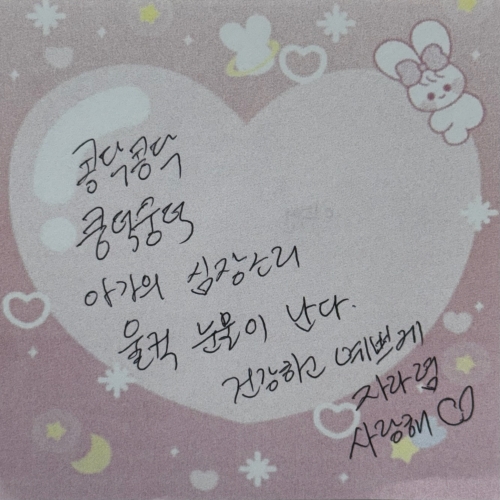 콩닥콩닥
쿵덕쿵덕
아가의 심장소리
울컥 눈물이 난다.
건강하고 예쁘게
자라렴
사랑해♡